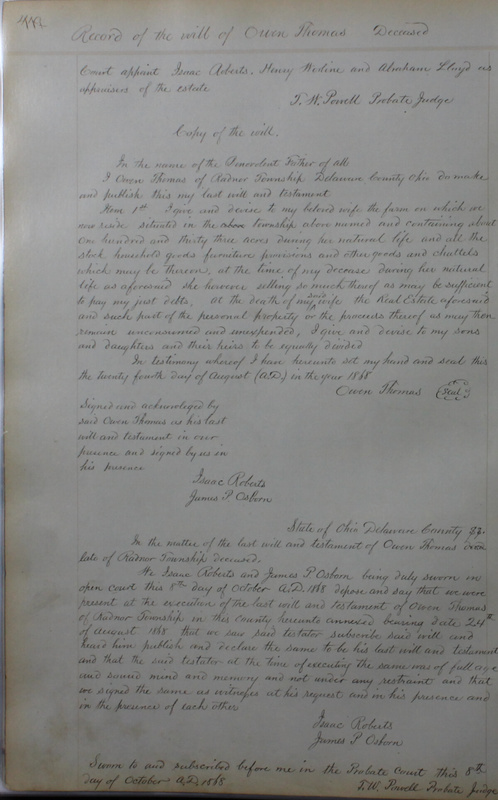 442
Record of the will of Owen Thomas Deceased
Court appint Isaac Roberts. Henry Worline and Abraham Lloyd as
appraisers of the estate
T. W. Powell Probate Judge
Copy of the will.
In the name of the Benevolent Father of all
I Owen Thomas of Radnor Township Delaware County Ohio do make
and publish this my last will and testament
Item 1st I give and devise to my beloved wife the farm on which we
now reside situated in the above township above named and containing about
One hundred and thirty three acres during her natural life and all the
stock household goods furniture provisions and other goods and chattels
which may be thereon, at the time of my decease during her natural
life as aforesaid she however selling so much thereof as may be sufficient
to pay my just debts, at the death of my said wife the Real Estate aforesaid
and such part of the personal property or the proceeds thereof as may then
remain unconsumed and unexpended, I give and devise to my sons
and daughters and their heirs to be equally divided
In testimony whereof I have hereunto set my hand and seal this
the twenty fourth day of August (A.D.) in the year 1868
Owen Thomas Seal
Signed and acknowleged by
said Owen Thomas as his last
will and testament in our
presence and signed by us in
his presence
Isaac Roberts
James P Osborn
State of Ohio Delaware County SS.
In the matter of the last will and testament of Owen Thomas
late of Radnor Township deceased.
We Isaac Roberts and James P. Osborn being duly sworn in
open court this 8th day of October A.D. 1868 depose and say that we were
present at the execution of the last will and testament of Owen Thomas
of Radnor Township in this County hereunto annexed bearing date 24th
of August 1868 that we saw said testator subscribe said will and
heard him publish and declare the same to be his last will and testament
and that the said testator at the time of executing the same was of full age
and sound mind and memory and not under any restraint and that
we signed the same as witnesses at his request and in his presence and
in the presence of each other
Isaac Roberts
James P Osborn
Sworn to and subscribed before me in the Probate Court this 8th
day of October A.D. 1868 T. W. Powell Probate Judge